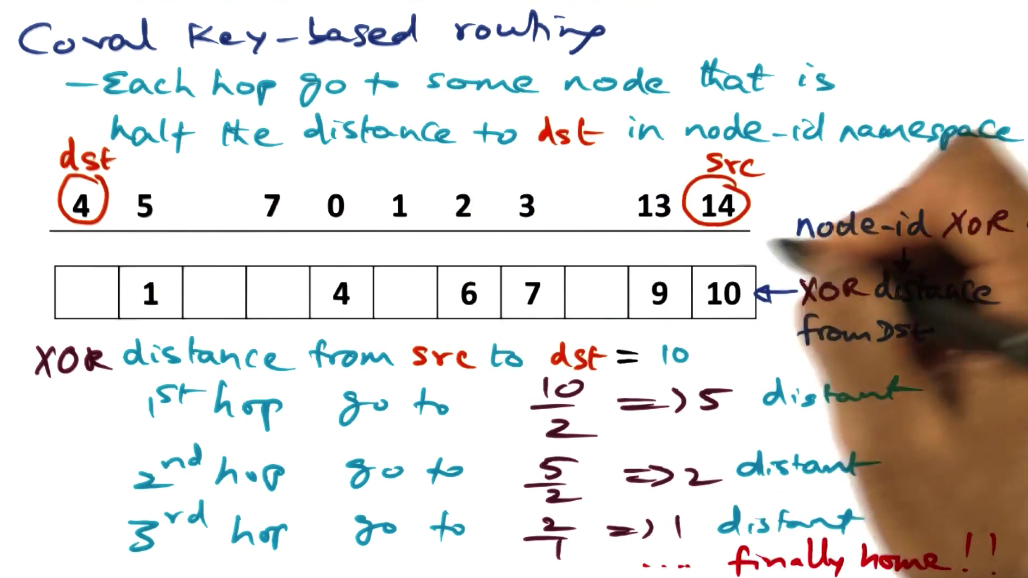 Coral Key-based routing
- Each hop go to some node that is
half the distance to dst in node-id namespace
dst
src
4 5 7 0 1 2 3 13 14
node-id XOR
1 4 6 7 9 10
XOR distance
from Dst
XOR distance from src to dst = 10
1st hop go to 10/2 => 5 distant
2nd hop go to 5/2 => 2 distant
3rd hop go to 2/1 => 1 distant
.... finally home!!